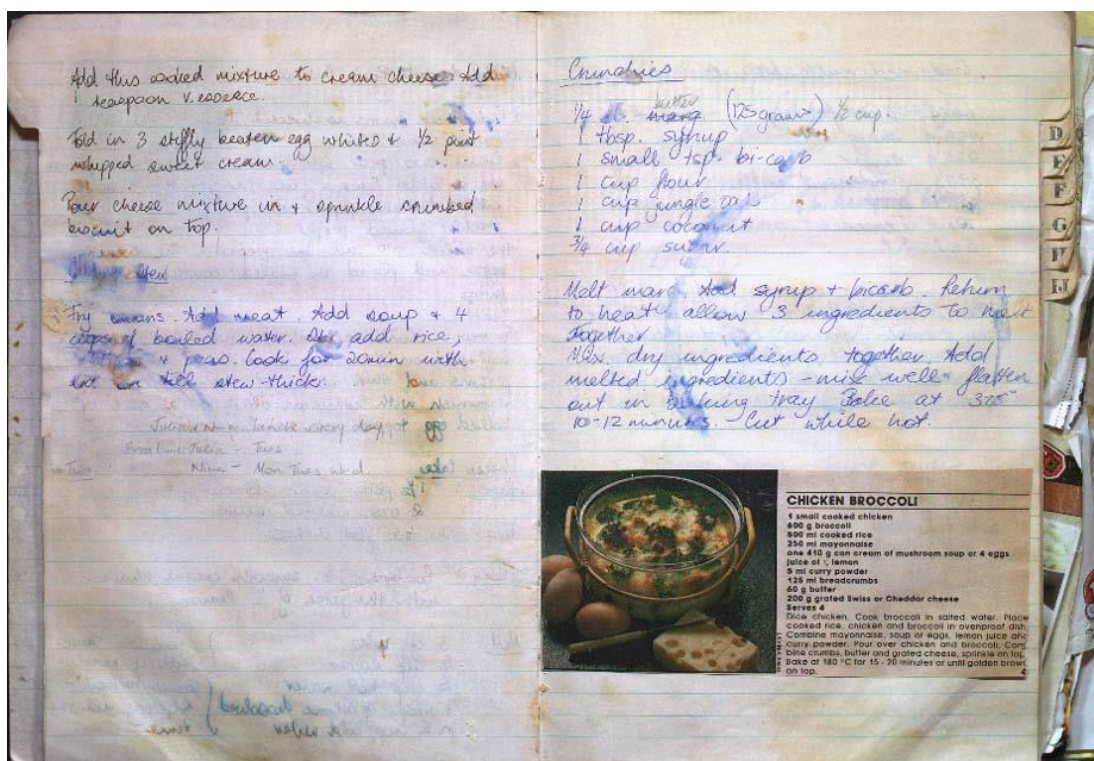 Add this cooked mixture to cream cheese. Add
1 teaspoon v. essence.
Fold in 3 stiffly beaten egg whites + 1/2 pint
whipped sweet cream.
Pour cheese mixture in + sprinkle crumbed
biscuit on top.
Stew
Fry onions. Add meat. Add soup + 4
cups of boiled water. add rice,
+ peas. Cook for 20min with
lid on till stew thick.
Julia - Tues
Mon Tues Wed.
Crunchies
1/4 lb. marg butter (125 grams) 1/2 cup.
1 tbsp. syrup
1 small tsp. bi-carb
1 cup flour
1 cup jungle oats
1 cup coconut
3/4 cup sugar.
Melt marg. Add syrup + bicarb. Return
to heat allow 3 ingredients to melt
together
Mix dry ingredients together. Add
melted ingredients - mix well flatten
out in baking tray Bake at 375°
10-12 minutes. Cut while hot.
CHICKEN BROCCOLI
1 small cooked chicken
600 g broccoli
500 ml cooked rice
250 ml mayonnaise
one 410 g can cream of mushroom soup or 4 eggs
juice of 1/2 lemon
5 ml curry powder
125 ml breadcrumbs
60 g butter
200 g grated Swiss or Cheddar cheese
Serves 4
Dice chicken. Cook broccoli in salted water. Place
cooked rice, chicken and broccoli in ovenproof dish.
Combine mayonnaise, soup or eggs, lemon juice and
curry powder. Pour over chicken and broccoli. Com-
bine crumbs, butter and grated cheese, sprinkle on top.
Bake at 180 °C for 15 - 20 minutes or until golden brown
on top.
D
E
F
G
H
IJ